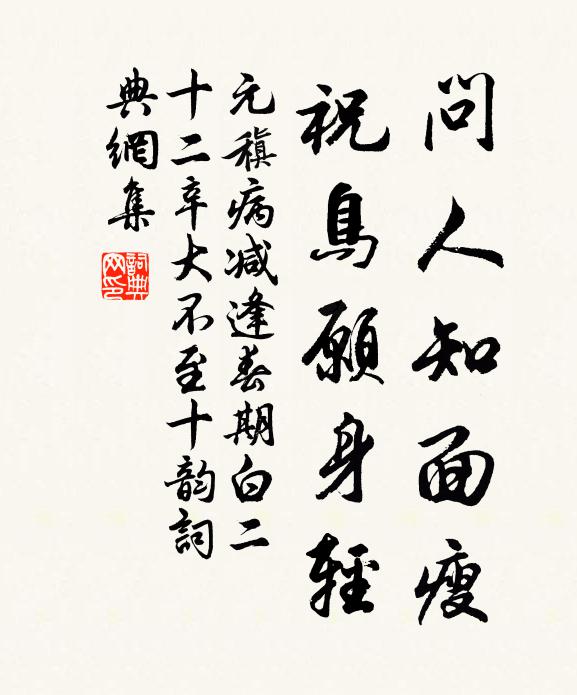 問人知面瘦
祝鳥願身輕
元稹病减逢春期白二
十二辛大不至十韵詞
典網集
詞典网印